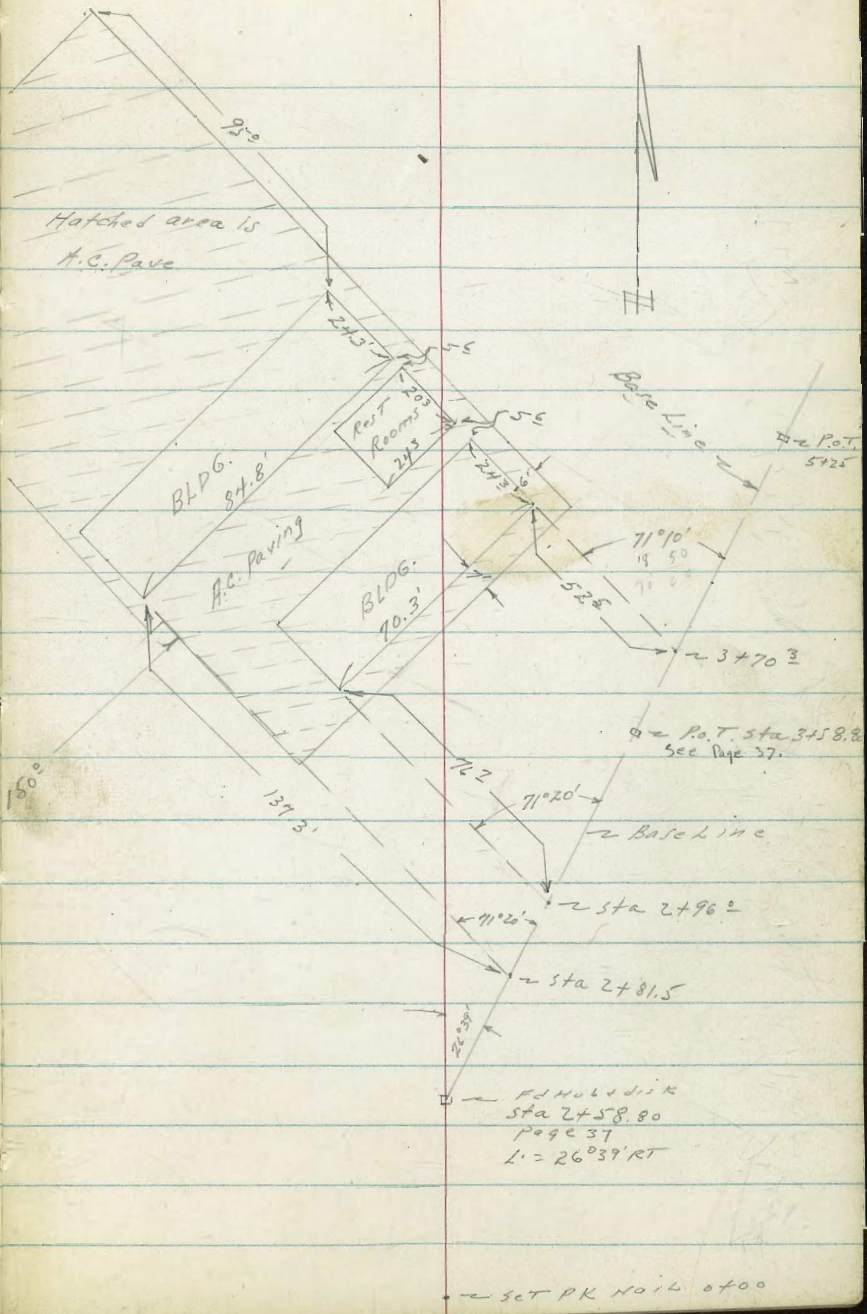 95⁰
Hatched area is
A.C. Pave
24.3'
5⁶
20³
Rest
Rooms
24³
5⁶
6'
24³
6'
Base Line
P.O.T.
5+25
BLDG.
84.8'
A.C. Paving
BLDG.
70.3'
7'
71°10'
18 50
52⁵
3+70³
P.O.T. Sta 3+58.8
See Page 37.
150⁰'
137 3'
76²
71°20'
Base Line
Sta 2+96⁰
71°20'
Sta 2+81.5
26°39'
Fd Hub + disk
Sta 2+58.80
Page 37
L. = 26°39' RT
Set PK Nail 0+00